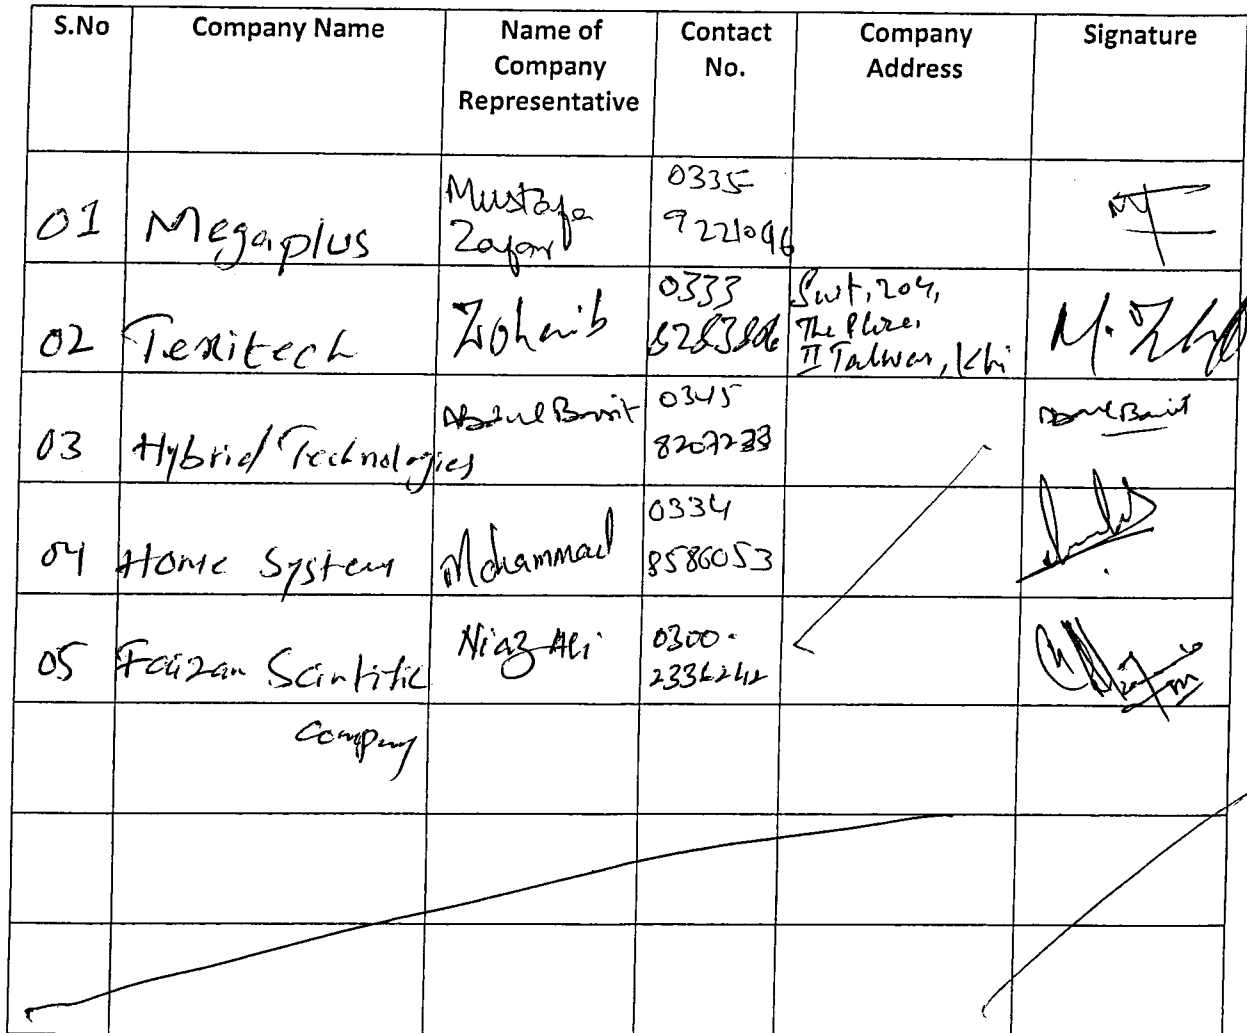 S.No Company Name Name of Company Representative Contact No. Company Address Signature
01 Megaplus Mustafa Zafar 0335 9221096
02 Texitech Zohaib 0333 The Place, II Talwar, Khi
03 Hybrid Technologies Abdul Basit 0345 8207233 Abdul Basit
04 Home System Mohammad 0334 8586053
05 Faizan Scintific Company Niaz Ali 0300-